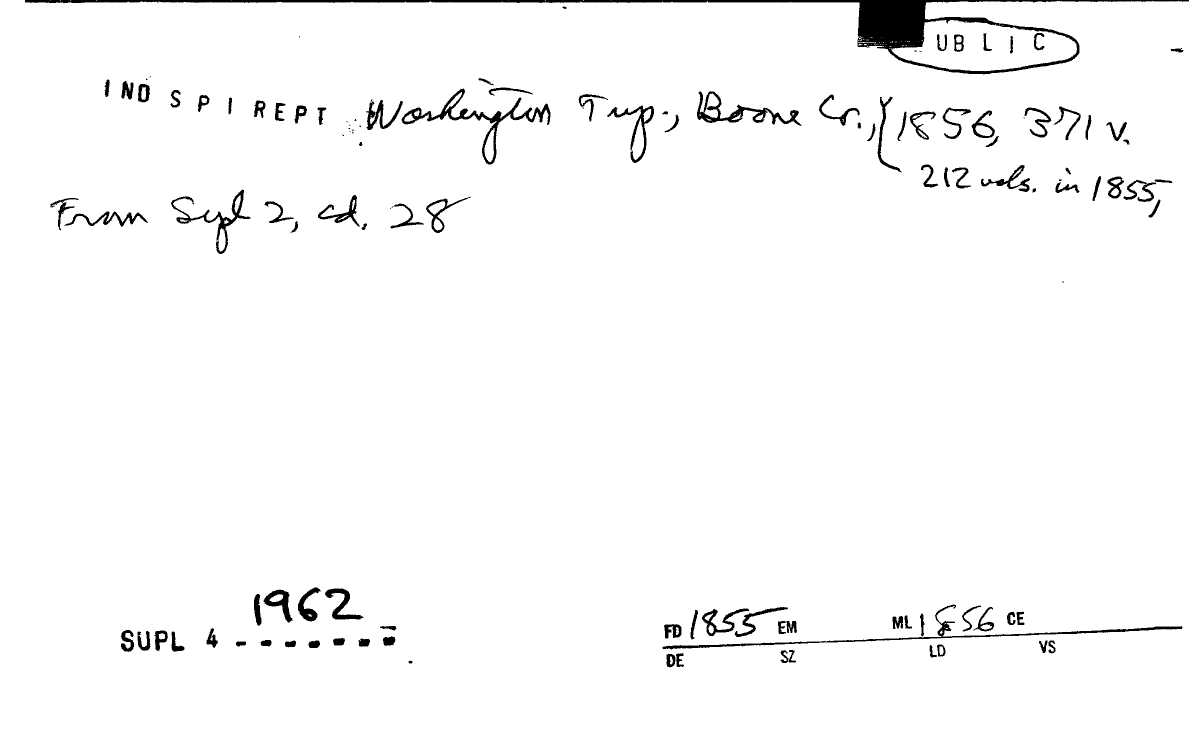 UBLIC
IND SPIREPT Washington Twp., Boone Co., { 1856, 371 v.
212 vols. in 1855,
From Supl 2, cd. 28
1962
SUPL 4 -------
FD 1855 EM ML 1856 CE
DE SZ LD VS